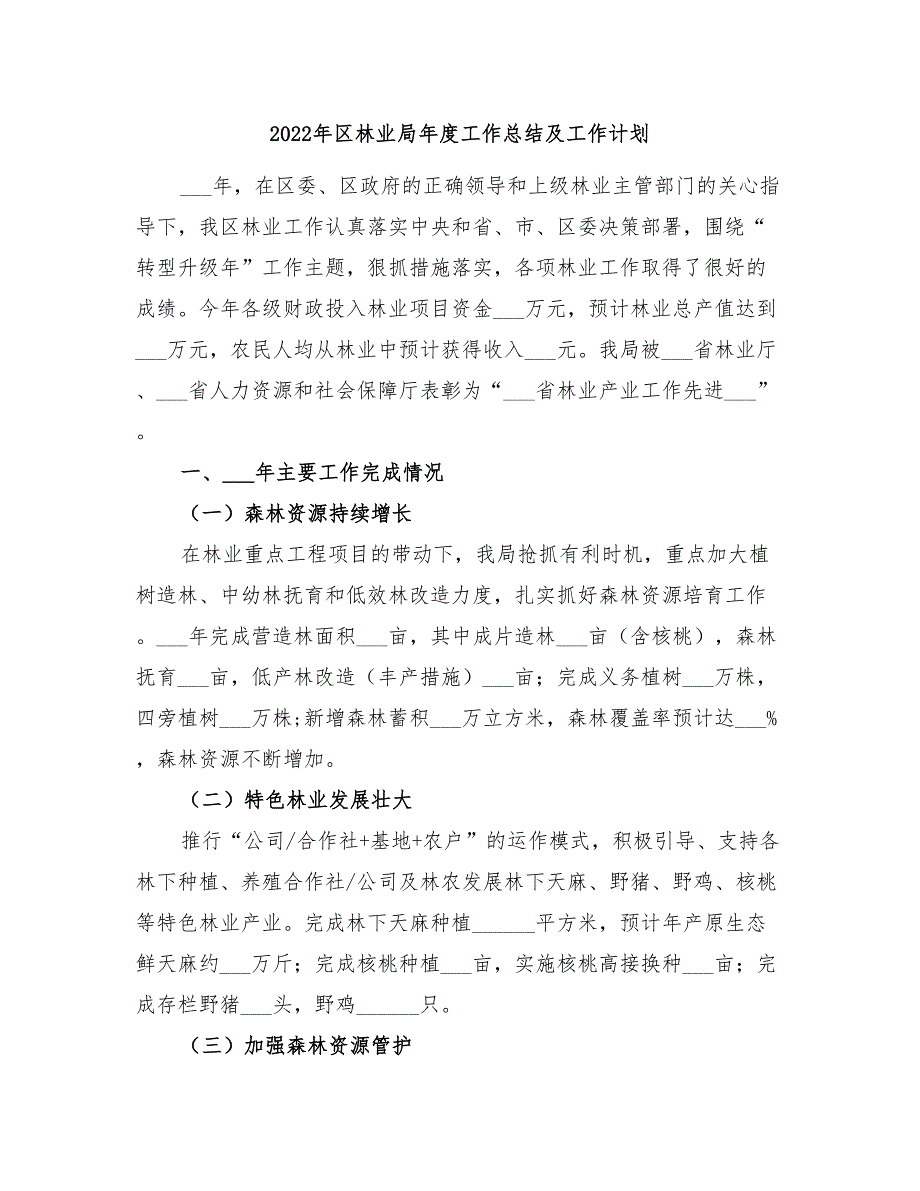 2022年区林业局年度工作总结及工作计划
___年，在区委、区政府的正确领导和上级林业主管部门的关心指
导下，我区林业工作认真落实中央和省、市、区委决策部署，围绕“
转型升级年”工作主题，狠抓措施落实，各项林业工作取得了很好的
成绩。今年各级财政投入林业项目资金___万元，预计林业总产值达到
___万元，农民人均从林业中预计获得收入___元。我局被___省林业厅
、___省人力资源和社会保障厅表彰为“___省林业产业工作先进___”
。
一、___年主要工作完成情况
（一）森林资源持续增长
在林业重点工程项目的带动下，我局抢抓有利时机，重点加大植
树造林、中幼林抚育和低效林改造力度，扎实抓好森林资源培育工作
。___年完成营造林面积___亩，其中成片造林___亩（含核桃），森林
抚育___亩，低产林改造（丰产措施）___亩；完成义务植树___万株，
四旁植树___万株;新增森林蓄积___万立方米，森林覆盖率预计达___%
，森林资源不断增加。
（二）特色林业发展壮大
推行“公司/合作社+基地+农户”的运作模式，积极引导、支持各
林下种植、养殖合作社/公司及林农发展林下天麻、野猪、野鸡、核桃
等特色林业产业。完成林下天麻种植______平方米，预计年产原生态
鲜天麻约___万斤；完成核桃种植___亩，实施核桃高接换种___亩；完
成存栏野猪___头，野鸡______只。
（三）加强森林资源管护